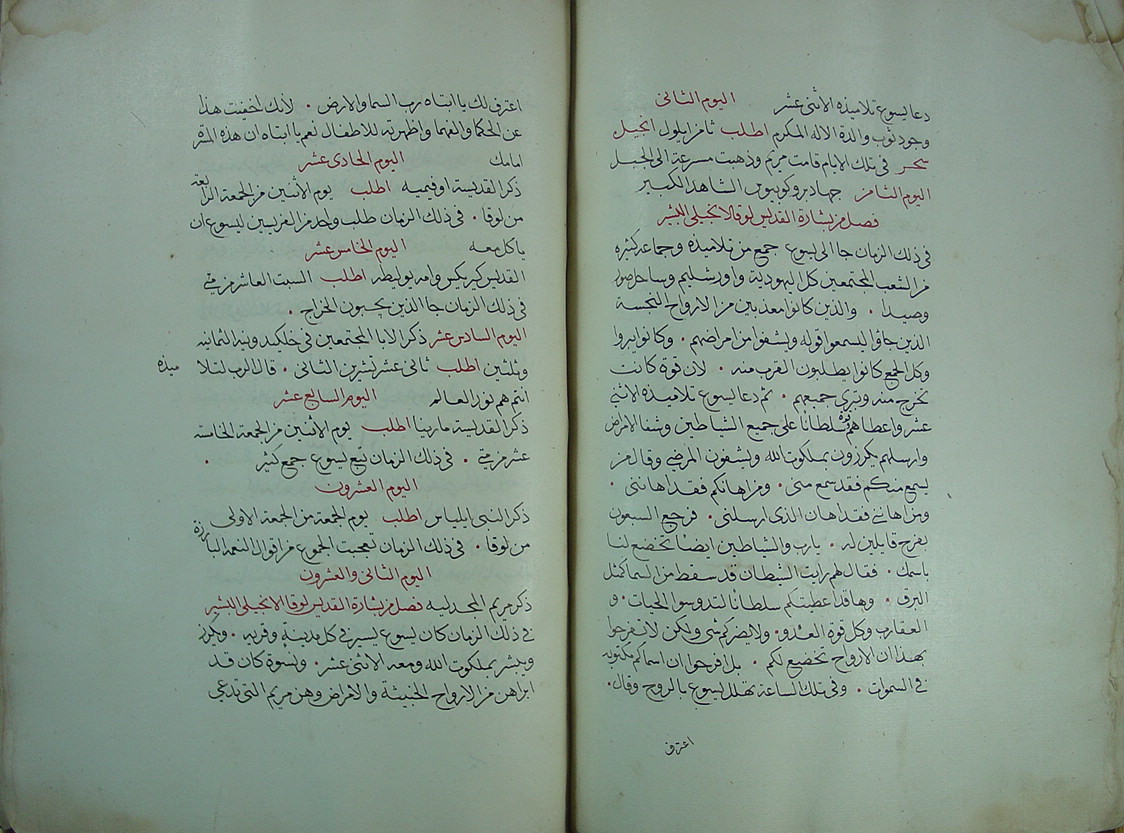 دعا يسوع تلاميذه الاثنى عشر اليوم الثانى
وجود ثوب والدة الاله المكرم اطلب ثامن ايلول انجيل
سحر فى تلك الايام قامت مريم وذهبت مسرعة الى الجبل
اليوم الثامن جهاد بروكوبيوس الشاهد الكبير
فصل من بشارة القديس لوقا الانجيلى البشير
فى ذلك الزمان جا الى يسوع جمع من تلاميذه وجماعه كثيره
من الشعب المجتمعين كل اليهودية واورشليم وساحل صور
وصيدا . والذين كانوا معذبين من الارواح النجسة
الذين جاؤا ليسمعوا قوله ويشفوا من امراضهم . وكانوا يبروا
وكل الجمع كانوا يطلبون القرب منه . لان قوة كانت
تخرج منه وتبرى جميعهم . ثم دعا يسوع تلاميذه الاثنى
عشر واعطاهم قوة سلطانا على جميع الشياطين وشفا الامراض
وارسلهم يكرزون بملكوت الله ويشفون المرضى وقال من
يسمع منكم فقد سمع منى . ومن اهانكم فقد اهاننى .
ومن اهاننى فقد اهان الذى ارسلنى . فرجع السبعون
بفرح قايلين له . يارب والشياطين ايضا تخضع لنا
باسمك . فقال لهم رايت الشيطان قد سقط من السما كمثل
البرق . وها قد اعطيتكم سلطانا لتدوسوا الحيات . و
العقارب وكل قوة العدو . ولا يضركم شى ولكن لا تفرحوا
بهذا ان الارواح تخضع لكم . بل افرحوا ان اسماكم مكتوبه
فى السموات . وفى تلك الساعة تهلل يسوع بالروح وقال .
اعترف
اعترف لك يا ابتاه رب السما والارض . لانك اخفيت هذا
عن الحكما والفهما واظهرته للاطفال نعم يا ابتاه ان هذه المسرة
امامك اليوم الحادى عشر
ذكر القديسة اوفيميه اطلب يوم الاثنين من الجمعة الرابعه
من لوقا . فى ذلك الزمان طلب واحد من الفريسيين ليسوع ان
ياكل معه اليوم الخامس عشر
القديس كيريكس وامه يوليطه اطلب السبت العاشر من متى
فى ذلك الزمان جا الذين يجبون الخراج .
اليوم السادس عشر ذكر الابا المجتمعين فى خلكيدونيه الثمانيه
وثلثين اطلب ثانى عشر تشرين الثانى . قال الرب لتلاميذه
انتم هم نور العالم اليوم السابع عشر
ذكر القديسة مارينا اطلب يوم الاثنين من الجمعة الخامسه
عشر من متى . فى ذلك الزمان تبع يسوع جمع كثير .
اليوم العشرون
ذكر النبى ايلياس اطلب يوم الجمعة من الجمعة الاولى
من لوقا . فى ذلك الزمان تعجبت الجموع من اقوال النعمه البارزة
اليوم الثانى والعشرون
ذكر مريم المجدليه فصل من بشارة القديس لوقا الانجيلى البشير
فى ذلك الزمان كان يسوع يسير فى كل مدينة وقريه . ويكرز
ويبشر بملكوت الله ومعه الاثنى عشر . ونسوة كان قد
ابراهن من الارواح الخبيثة والامراض وهن مريم التى تدعى